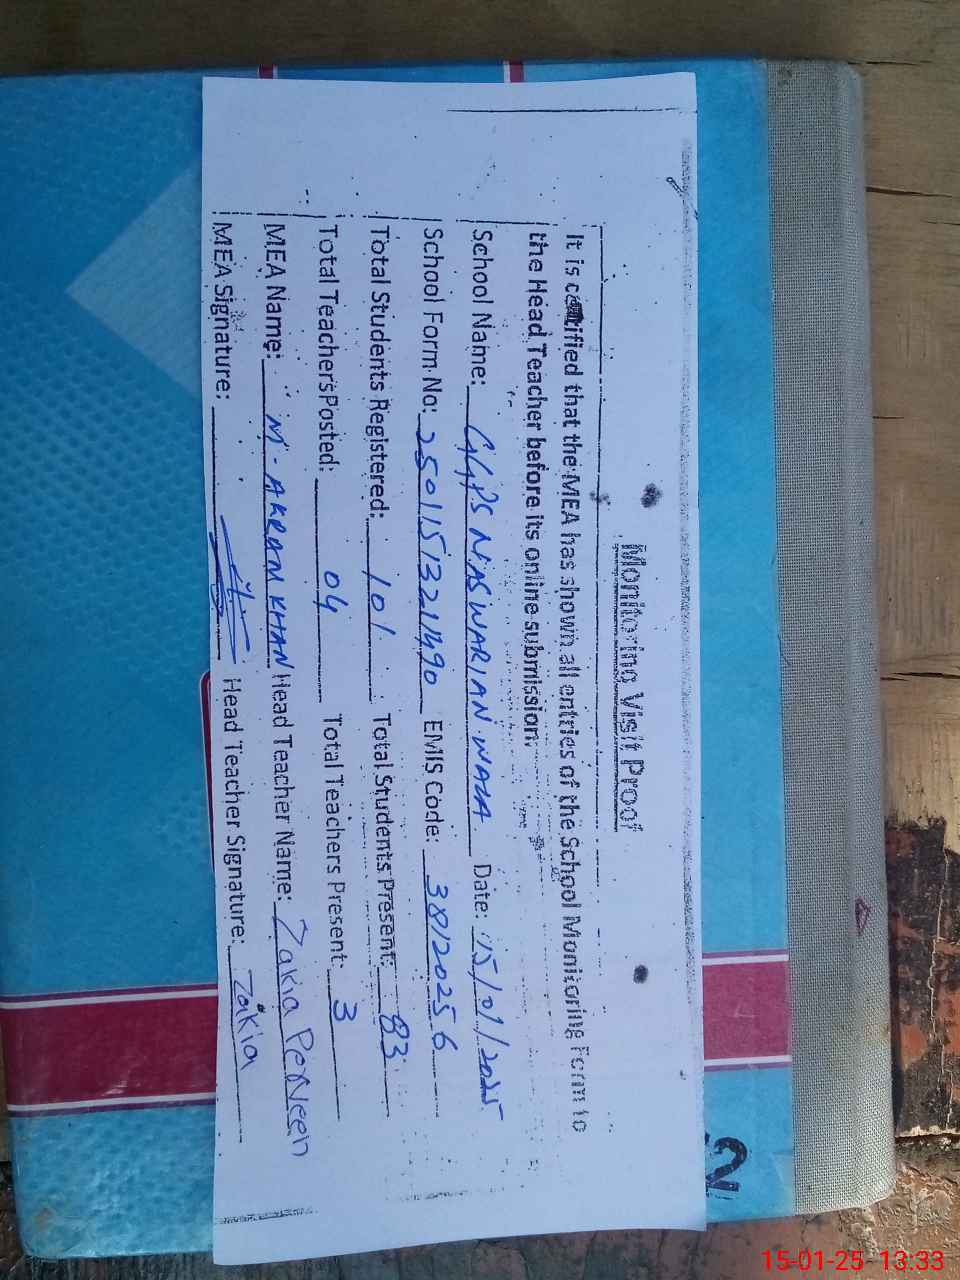 Monitoring Visit Proof
It is certified that the MEA has shown all entries of the School Monitoring Form to
the Head Teacher before its online submission.
School Name: GGPS NASWARIAN WALA Date: 15/01/2025
School Form No: 2501151321490 EMIS Code: 38120256
Total Students Registered: 101 Total Students Present: 83
Total Teachers Posted: 04 Total Teachers Present: 3
MEA Name: M. AKRAM KHAN Head Teacher Name: Zakia PeRveen
MEA Signature: Head Teacher Signature: Zakia
2
15-01-25 13:33